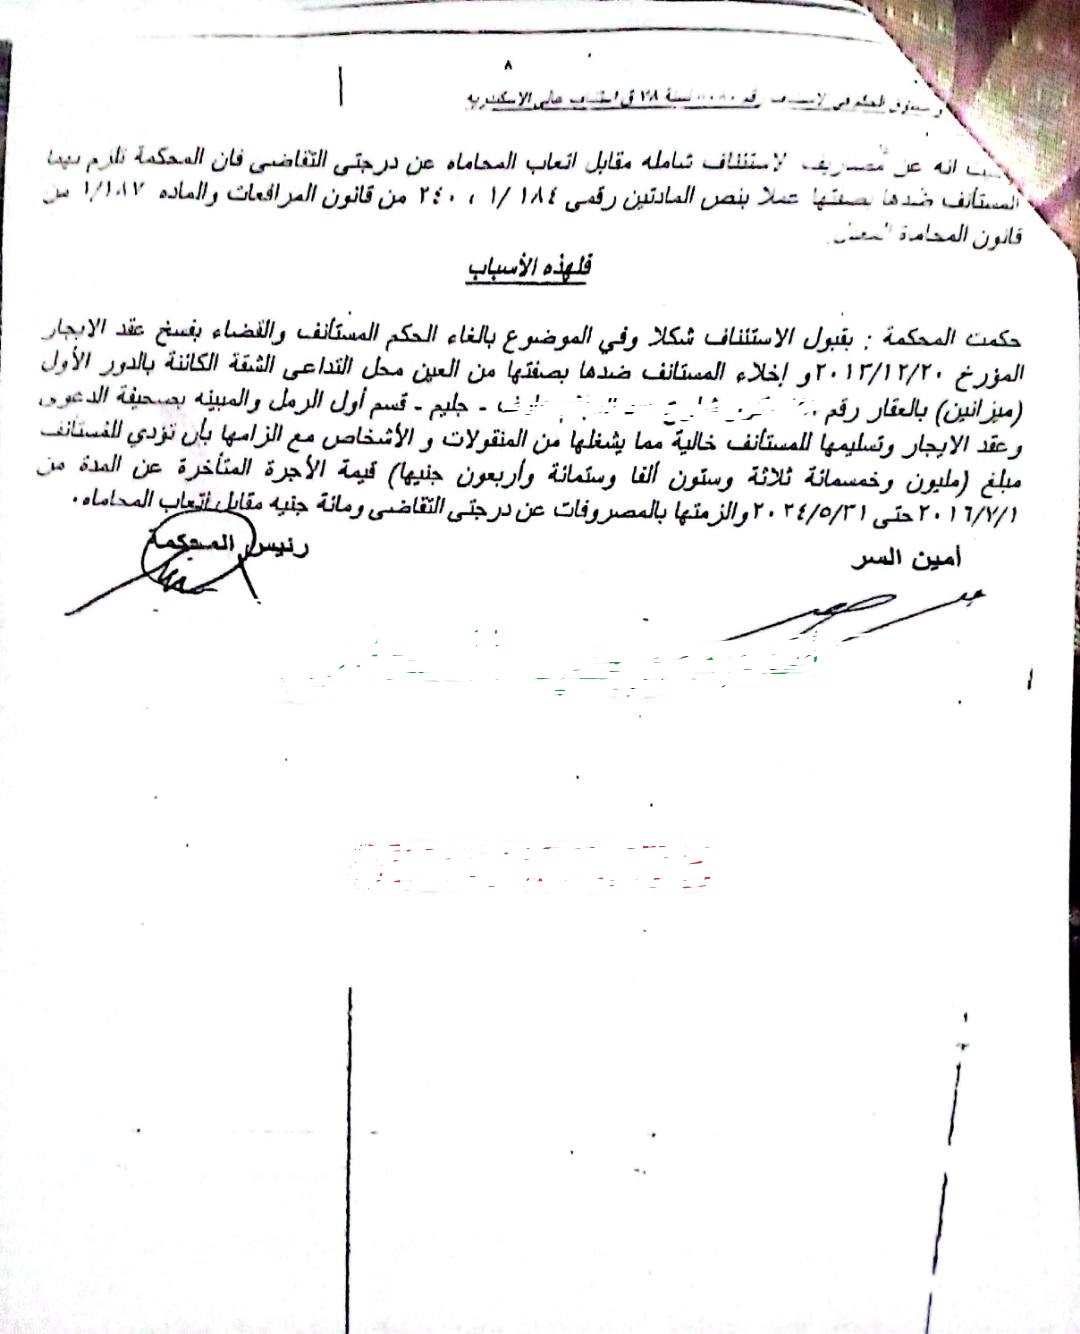 ٨
الحكم في الاستئناف رقم لسنة ٧٨ ق استئناف عالى الاسكندريه
انه عن مصاريف الاستئناف شامله مقابل اتعاب المحاماه عن درجتى التقاضى فان المحكمة تلزم بهما
المستأنف ضدها بصفتها عملا بنص المادتين رقمى ١/ ١٨٤ ، ٢٤٠ من قانون المرافعات والماده ١/١٨٧ من
قانون المحاماة المعدل
فلهذه الأسباب
حكمت المحكمة : بقبول الاستئناف شكلا وفي الموضوع بالغاء الحكم المستأنف والقضاء بفسخ عقد الايجار
المؤرخ ٢٠١٣/١٢/٢٠ و إخلاء المستانف ضدها بصفتها من العين محل التداعى الشقة الكائنة بالدور الأول
(ميزانين) بالعقار رقم - جليم - قسم أول الرمل والمبينه بصحيفة الدعوى
وعقد الايجار وتسليمها للمستأنف خالية مما يشغلها من المنقولات و الأشخاص مع الزامها بأن تؤدي للمستانف
مبلغ (مليون وخمسمائة ثلاثة وستون ألفا وستمائة وأربعون جنيها) قيمة الأجرة المتأخرة عن المدة من
٢٠١٦/٧/١ حتى ٢٠٢٤/٥/٣١ والزمتها بالمصروفات عن درجتى التقاضى ومائة جنيه مقابل اتعاب المحاماه.
أمين السر رئيس المحكمة